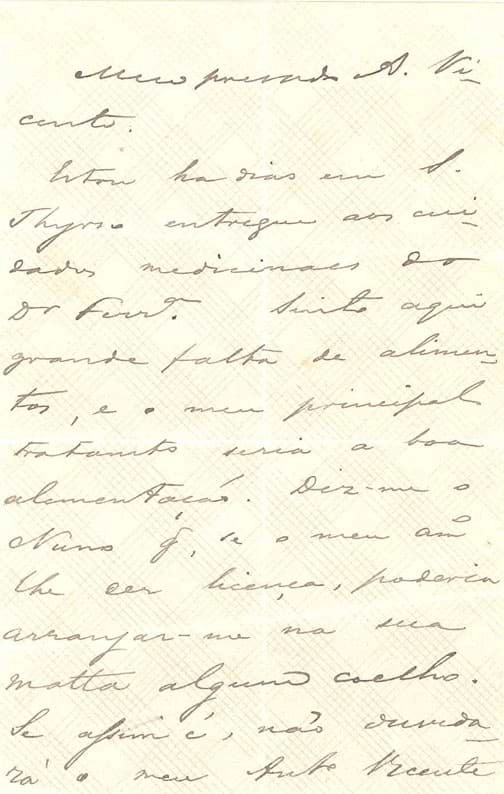 Meu presado A. Vi-
cente.
Estou ha dias em S.
Thyrso entregue aos cui-
dados medicinaes do
Dr Ferrª. Sinto aqui
grande falta de alimen-
tos, e o meu principal
tratamto seria a boa
alimentação. Diz-me o
Nuno q̃, se o meu amº
lhe der licença, poderia
arranjar-me na sua
matta algum coelho.
Se assim é, não duvida-
rá o meu Antº Vicente